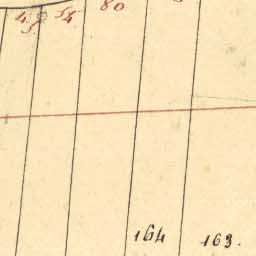 54
80
164
163.